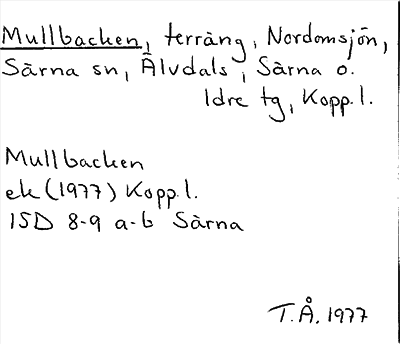 Mullbacken, terräng, Nordomsjön,
Särna sn, Älvdals, Särna o.
Idre tg, Kopp.l.
Mullbacken
ek (1977) Kopp.l.
15D 8-9 a-b Särna
T.Å. 1977